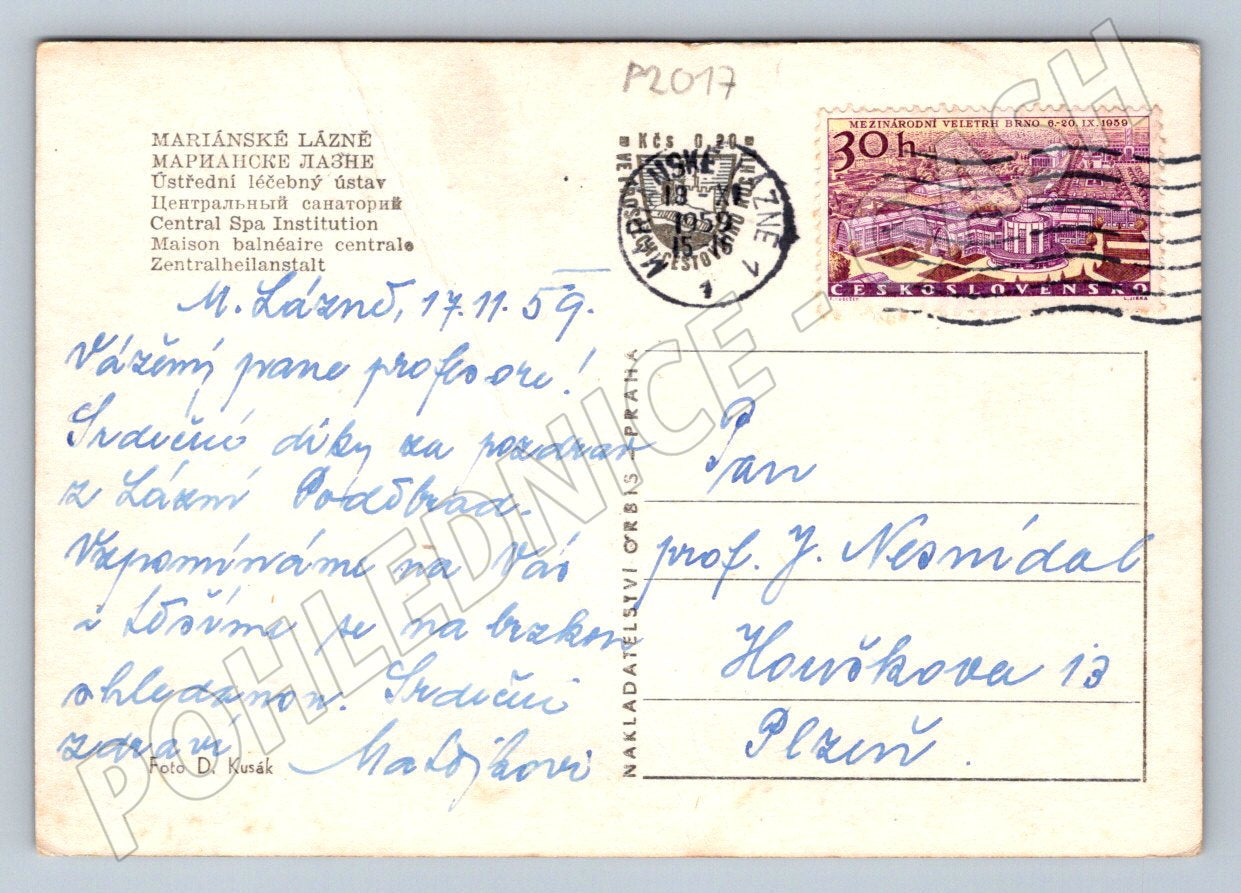 P2017
MARIÁNSKÉ LÁZNĚ
МАРИАНСКЕ ЛАЗНЕ
Ústřední léčebný ústav
Центральный санаторий
Central Spa Institution
Maison balnéaire centrale
Zentralheilanstalt
M. Lázně, 17.11.59.
Vážený pane profesore!
Srdečné díky za pozdrav
z Lázní Poděbrad.
Vzpomínáme na Vás
a těšíme se na brzkou
shledanou. Srdečně
zdraví Matějkovi
Foto D. Kusák
NAKLADATELSTVÍ ORBIS - PRAHA
Kčs 0,20
MARIÁNSKÉ LÁZNĚ 1
1959
MEZINÁRODNÍ VELETRH BRNO 6-20. IX. 1959
30 h
ČESKOSLOVENSKO
Pan
prof. J. Nesnídal
Houškova 13
Plzeň.
POHLEDNICE - CASH